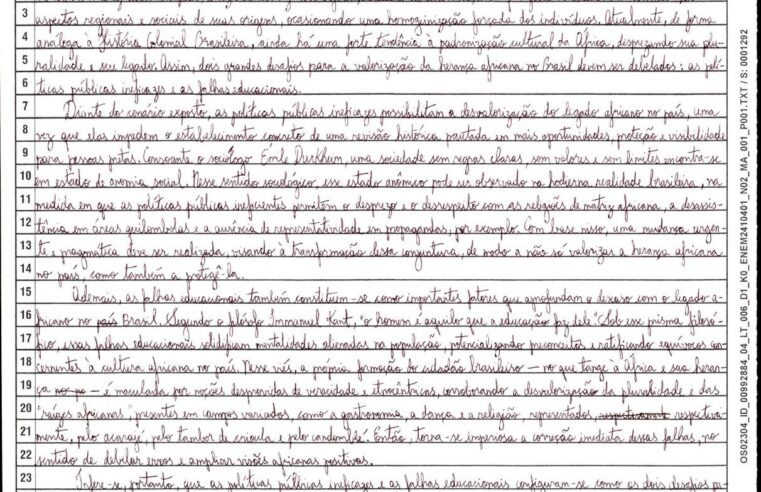 3 aspectos regionais e sociais de suas origens, ocasionando uma homoginização forçada dos indivíduos. Atualmente, de forma
4 análoga à História Colonial Brasileira, ainda há uma forte tendência à padronização cultural da África, desprezando sua plu-
5 ralidade e seu legado. Assim, dois grandes desafios para a valorização da herança africana no Brasil devem ser debelados: as polí-
6 ticas públicas ineficazes e as falhas educacionais.
7 Diante do cenário exposto, as políticas públicas ineficazes possibilitam a desvalorização do legado africano no país, uma
8 vez que elas impedem o estabelecimento concreto de uma revisão histórica pautada em mais oportunidades, proteção e visibilidade
9 para pessoas pretas. Consoante o sociólogo Émile Durkheim, uma sociedade sem regras claras, sem valores e sem limites encontra-se
10 em estado de anomia social. Nesse sentido sociológico, esse estado anômico pode ser observado na hodierna realidade brasileira, na
11 medida em que as políticas públicas ineficientes permitem o desprezo e o desrespeito com as religiões de matriz africana, a desassis-
12 tência em áreas quilombolas e a ausência de representatividade em propagandas, por exemplo. Com base nisso, uma mudança urgen-
13 te e pragmática deve ser realizada, visando à transformação desta conjuntura, de modo a não só valorizar a herança africana
14 no país, como também a protegê-la.
15 Ademais, as falhas educacionais também constituem-se como importantes fatores que aprofundam o descaso com o legado a-
16 fricano no país Brasil. Segundo o filósofo Immanuel Kant, "o homem é aquilo que a educação faz dele". Sob esse prisma filosó-
17 fico, essas falhas educacionais solidificam mentalidades alienadas na população, potencializando preconceitos e ratificando equívocos con-
18 cernentes à cultura africana no país. Nesse viés, a própria formação do cidadão brasileiro — no que tange à África e sua heran-
19 ça no po — é maculada por noções desprovidas de veracidade e etnocêntricas, corroborando a desvalorização da pluralidade e das
20 "raízes africanas" presentes em campos variados, como a gastronomia, a dança e a religião, representados, respectiva-
21 mente, pelo acarajé, pelo tambor de crioula e pelo candomblé. Então, torna-se imperiosa a correção imediata dessas falhas, no
22 sentido de debelar erros e ampliar visões africanas positivas.
23 Infere-se, portanto, que as políticas públicas ineficazes e as falhas educacionais configuram-se como os dois desafios pa-
OS02304_ID_00992884_04_LT_006_D1_K0_ENEM2410401_N02_MA_001_P001.TXT / S: 0001292